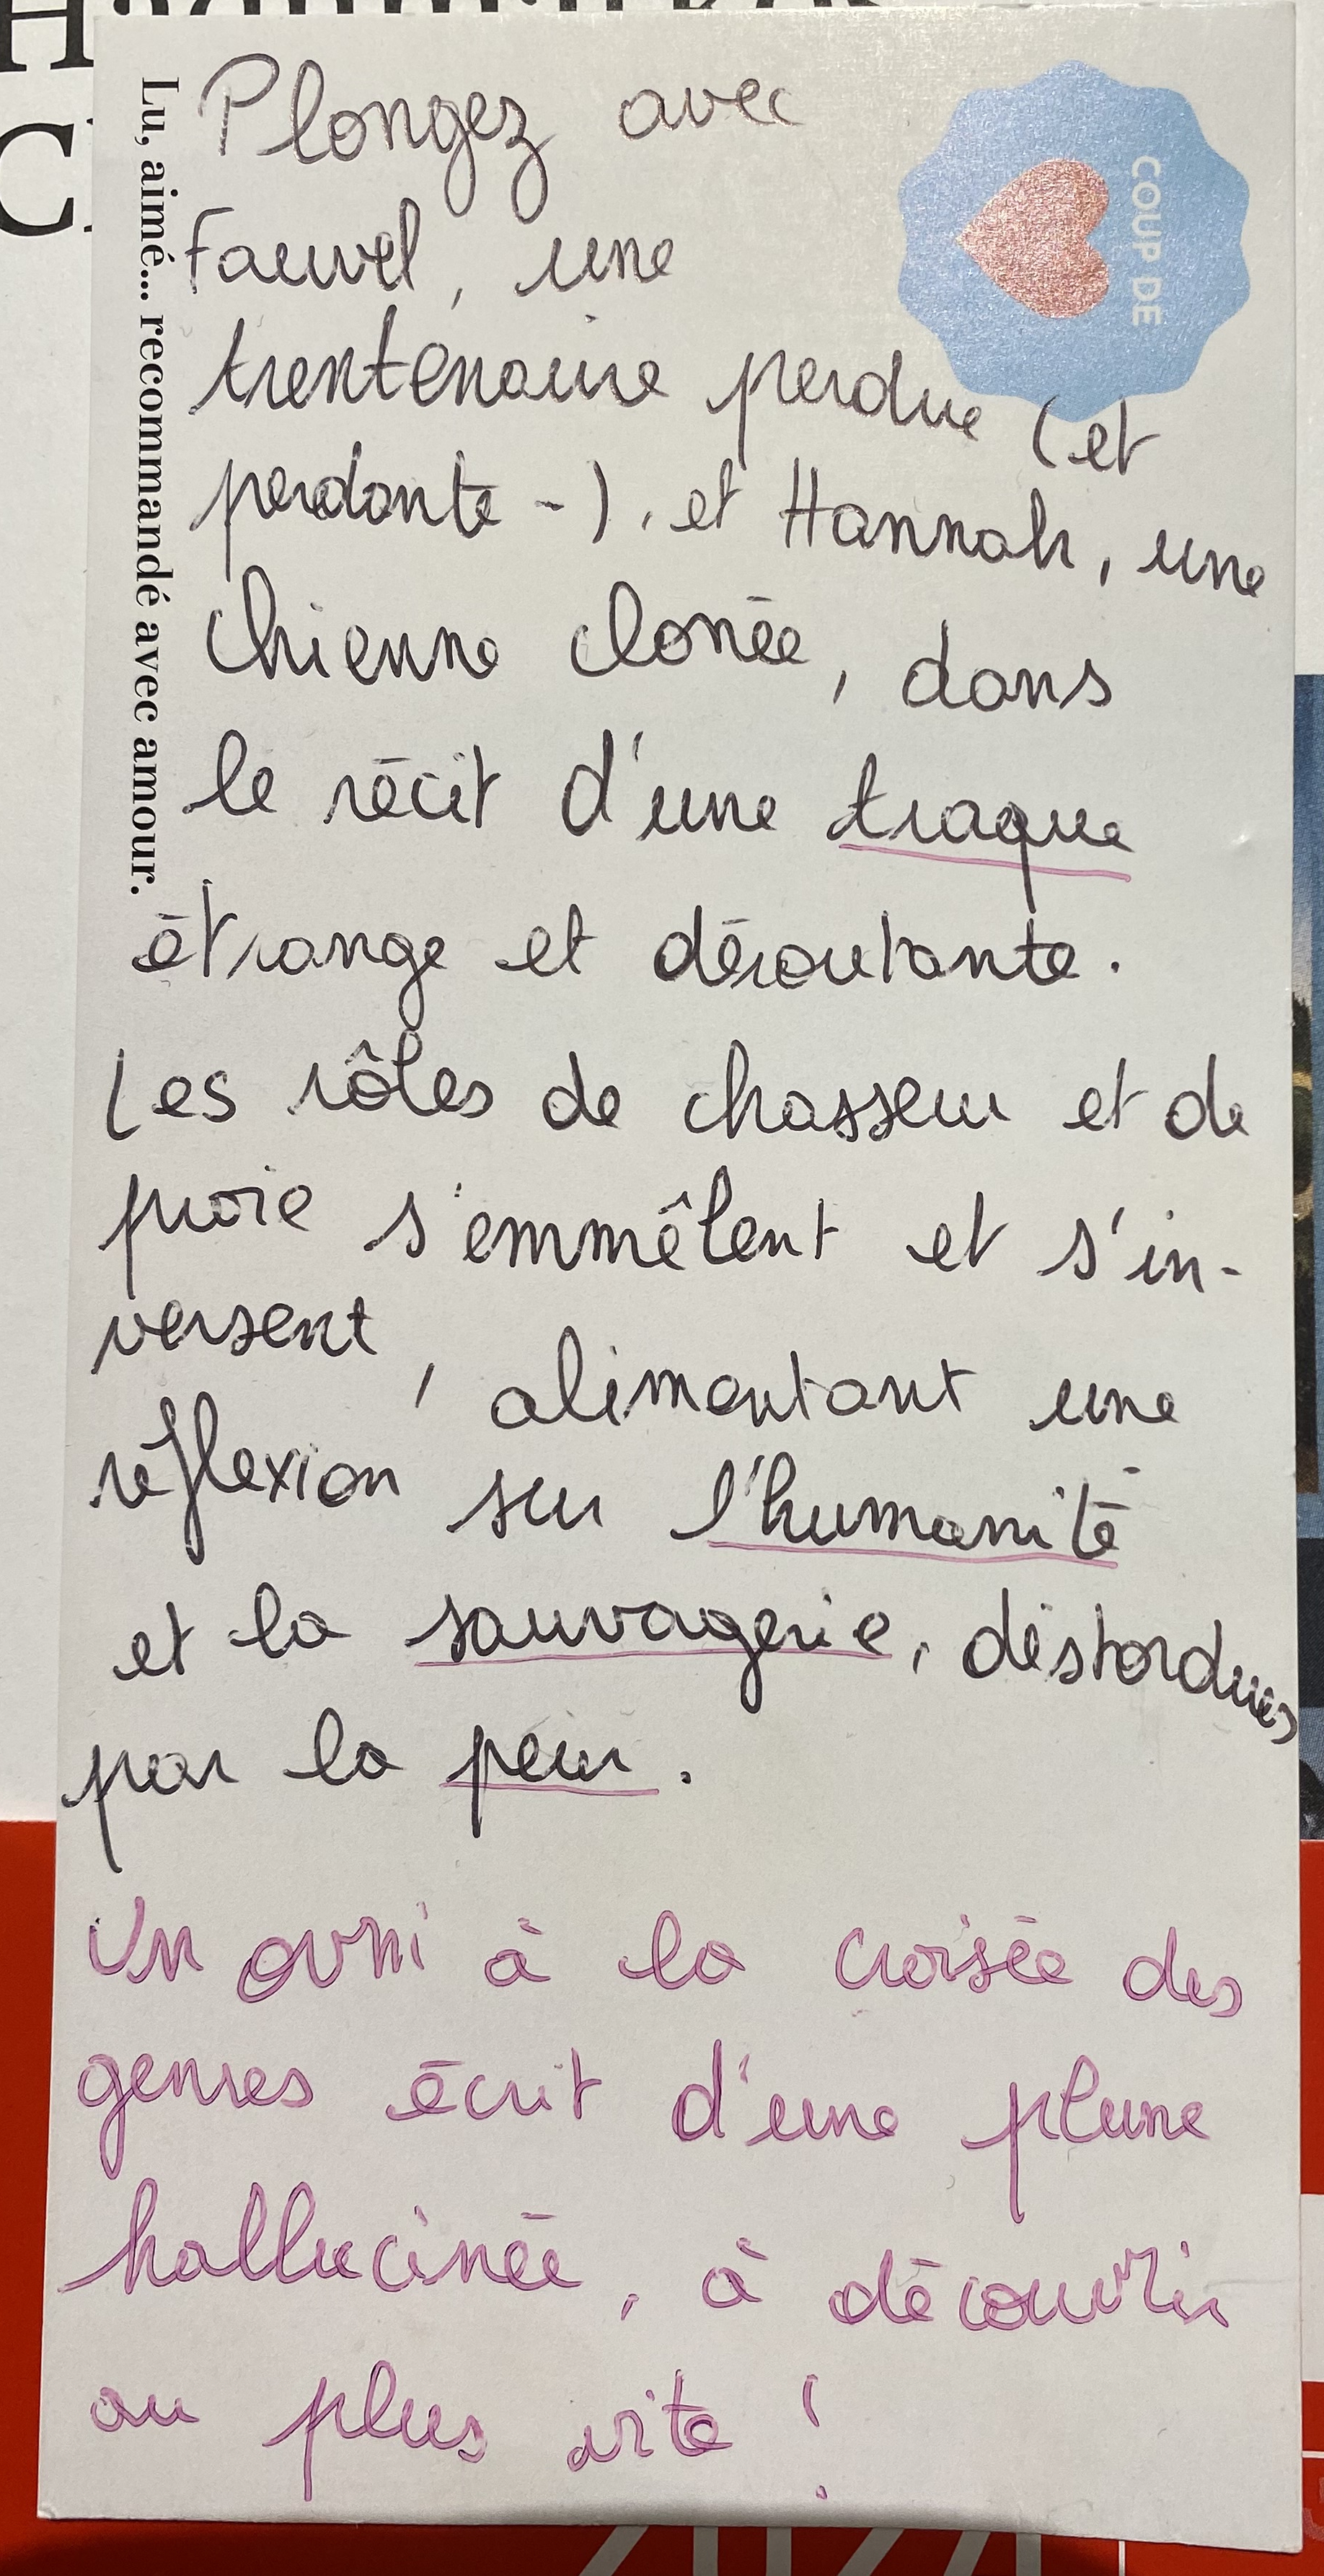 Lu, aimé... recommandé avec amour.
COUP DE
Plongez avec
Fauvel, une
trentenaire perdue (et
perdante -), et Hannah, une
chienne clonée, dans
le récit d'une traque
étrange et déroutante.
Les rôles de chasseur et de
proie s'emmêlent et s'in-
versent, alimentant une
réflexion sur l'humanité
et la sauvagerie, distordues
par la peur.
Un ovni à la croisée des
genres écrit d'une plume
hallucinée, à découvrir
au plus vite !